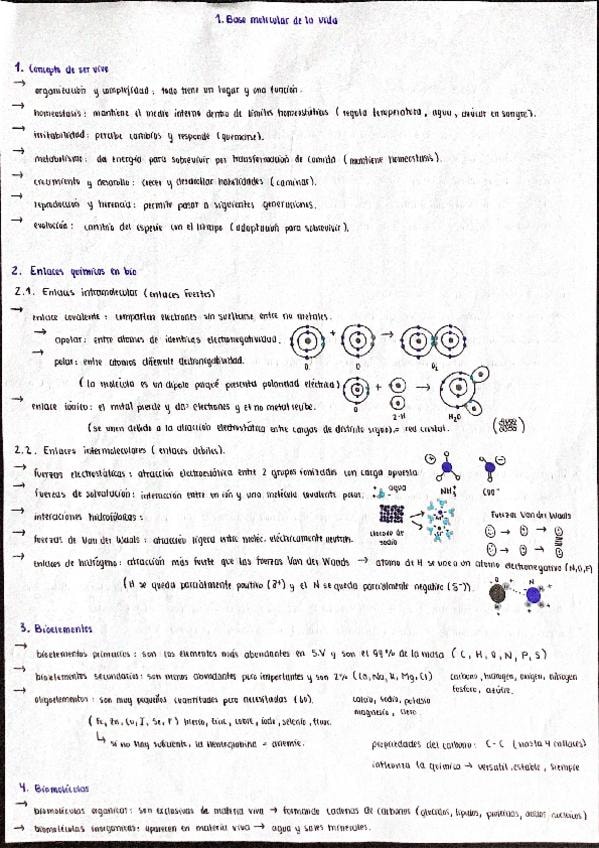 1. Base molecular de la vida
1. Concepto de ser vivo
→ organización y complejidad: todo tiene un lugar y una función.
→ homeostasis: mantiene el medio interno dentro de límites homeostáticos (regula temperatura, agua, azúcar en sangre).
→ irritabilidad: percibe cambios y responde (quemarse).
→ metabolismo: da energía para sobrevivir por transformación de comida (mantiene homeostasis).
→ crecimiento y desarollo: crecer y desarollar habilidades (caminar).
→ reproducción y herencia: permite pasar a siguientes generaciones.
→ evolución: cambio del especie con el tiempo (adaptación para sobrevivir).
2. Enlaces químicos en bio
2.1. Enlaces intramolecular (enlaces fuertes)
→ enlace covalente: comparten electrones sin soltarse entre no metales.
→ apolar: entre átomos de identicas electronegatividad.
O + O → O₂
→ polar: entre átomos diferente electronegatividad.
(la molécula es un dipolo porque presenta polaridad eléctrica)
O + 2·H → H₂O
→ enlace iónico: el metal pierde y da electrones y el no metal recibe.
(se unen debido a la atracción electrostática entre cargas de distinto signo) = red cristal.
2.2. Enlaces intermoleculares (enlaces débiles).
→ fuerzas electrostáticas: atracción electrostática entre 2 grupos ionizados con carga opuesta
NH₃⁺ COO⁻
→ fuerzas de solvatación: interacción entre un ión y una molécula covalente polar.
agua
→ interacciones hidrofóbicas:
cloruro de sodio
Fuerzas Van der Waals
→ fuerzas de Van der Waals: atracción ligera entre molec. eléctricamente neutron.
→ enlaces de hidrógeno: atracción más fuerte que las fuerzas Van der Waals → atomo de H se une a un atomo electronegativo (N,O,F)
(H se queda parcialmente positivo (δ⁺) y el N se queda parcialmente negativo (δ⁻)).
3. Bioelementos
→ bioelementos primarios: son los elementos más abundantes en S.V y son el 99% de la masa (C, H, O, N, P, S)
carbono, hidrógeno, oxigeno, nitrogeno
fosforo, azufre.
→ bioelementos secundarios: son menos abundantes pero importantes y son 2% (Ca, Na, K, Mg, Cl)
calcio, sodio, potasio
magnesio, cloro
→ oligoelementos: son muy pequeños cuantitades pero necesitadas
(Fe, Zn, Cu, I, Se, F) hierro, zinc, cobre, iodo, selenio, fluor.
↳ si no hay suficiente, la hemoglobina = anemia.
propiedades del carbono: C-C (hasta 4 enlaces)
química → versatil, estable, siempre
4. Biomoléculas
→ biomoléculas organicas: son exclusivas de materia viva → formando cadenas de carbonos (glúcidos, lípidos, proteínas, ácidos nucleicos)
→ biomoléculas inorganicas: aparecen en materia viva → agua y sales minerales.